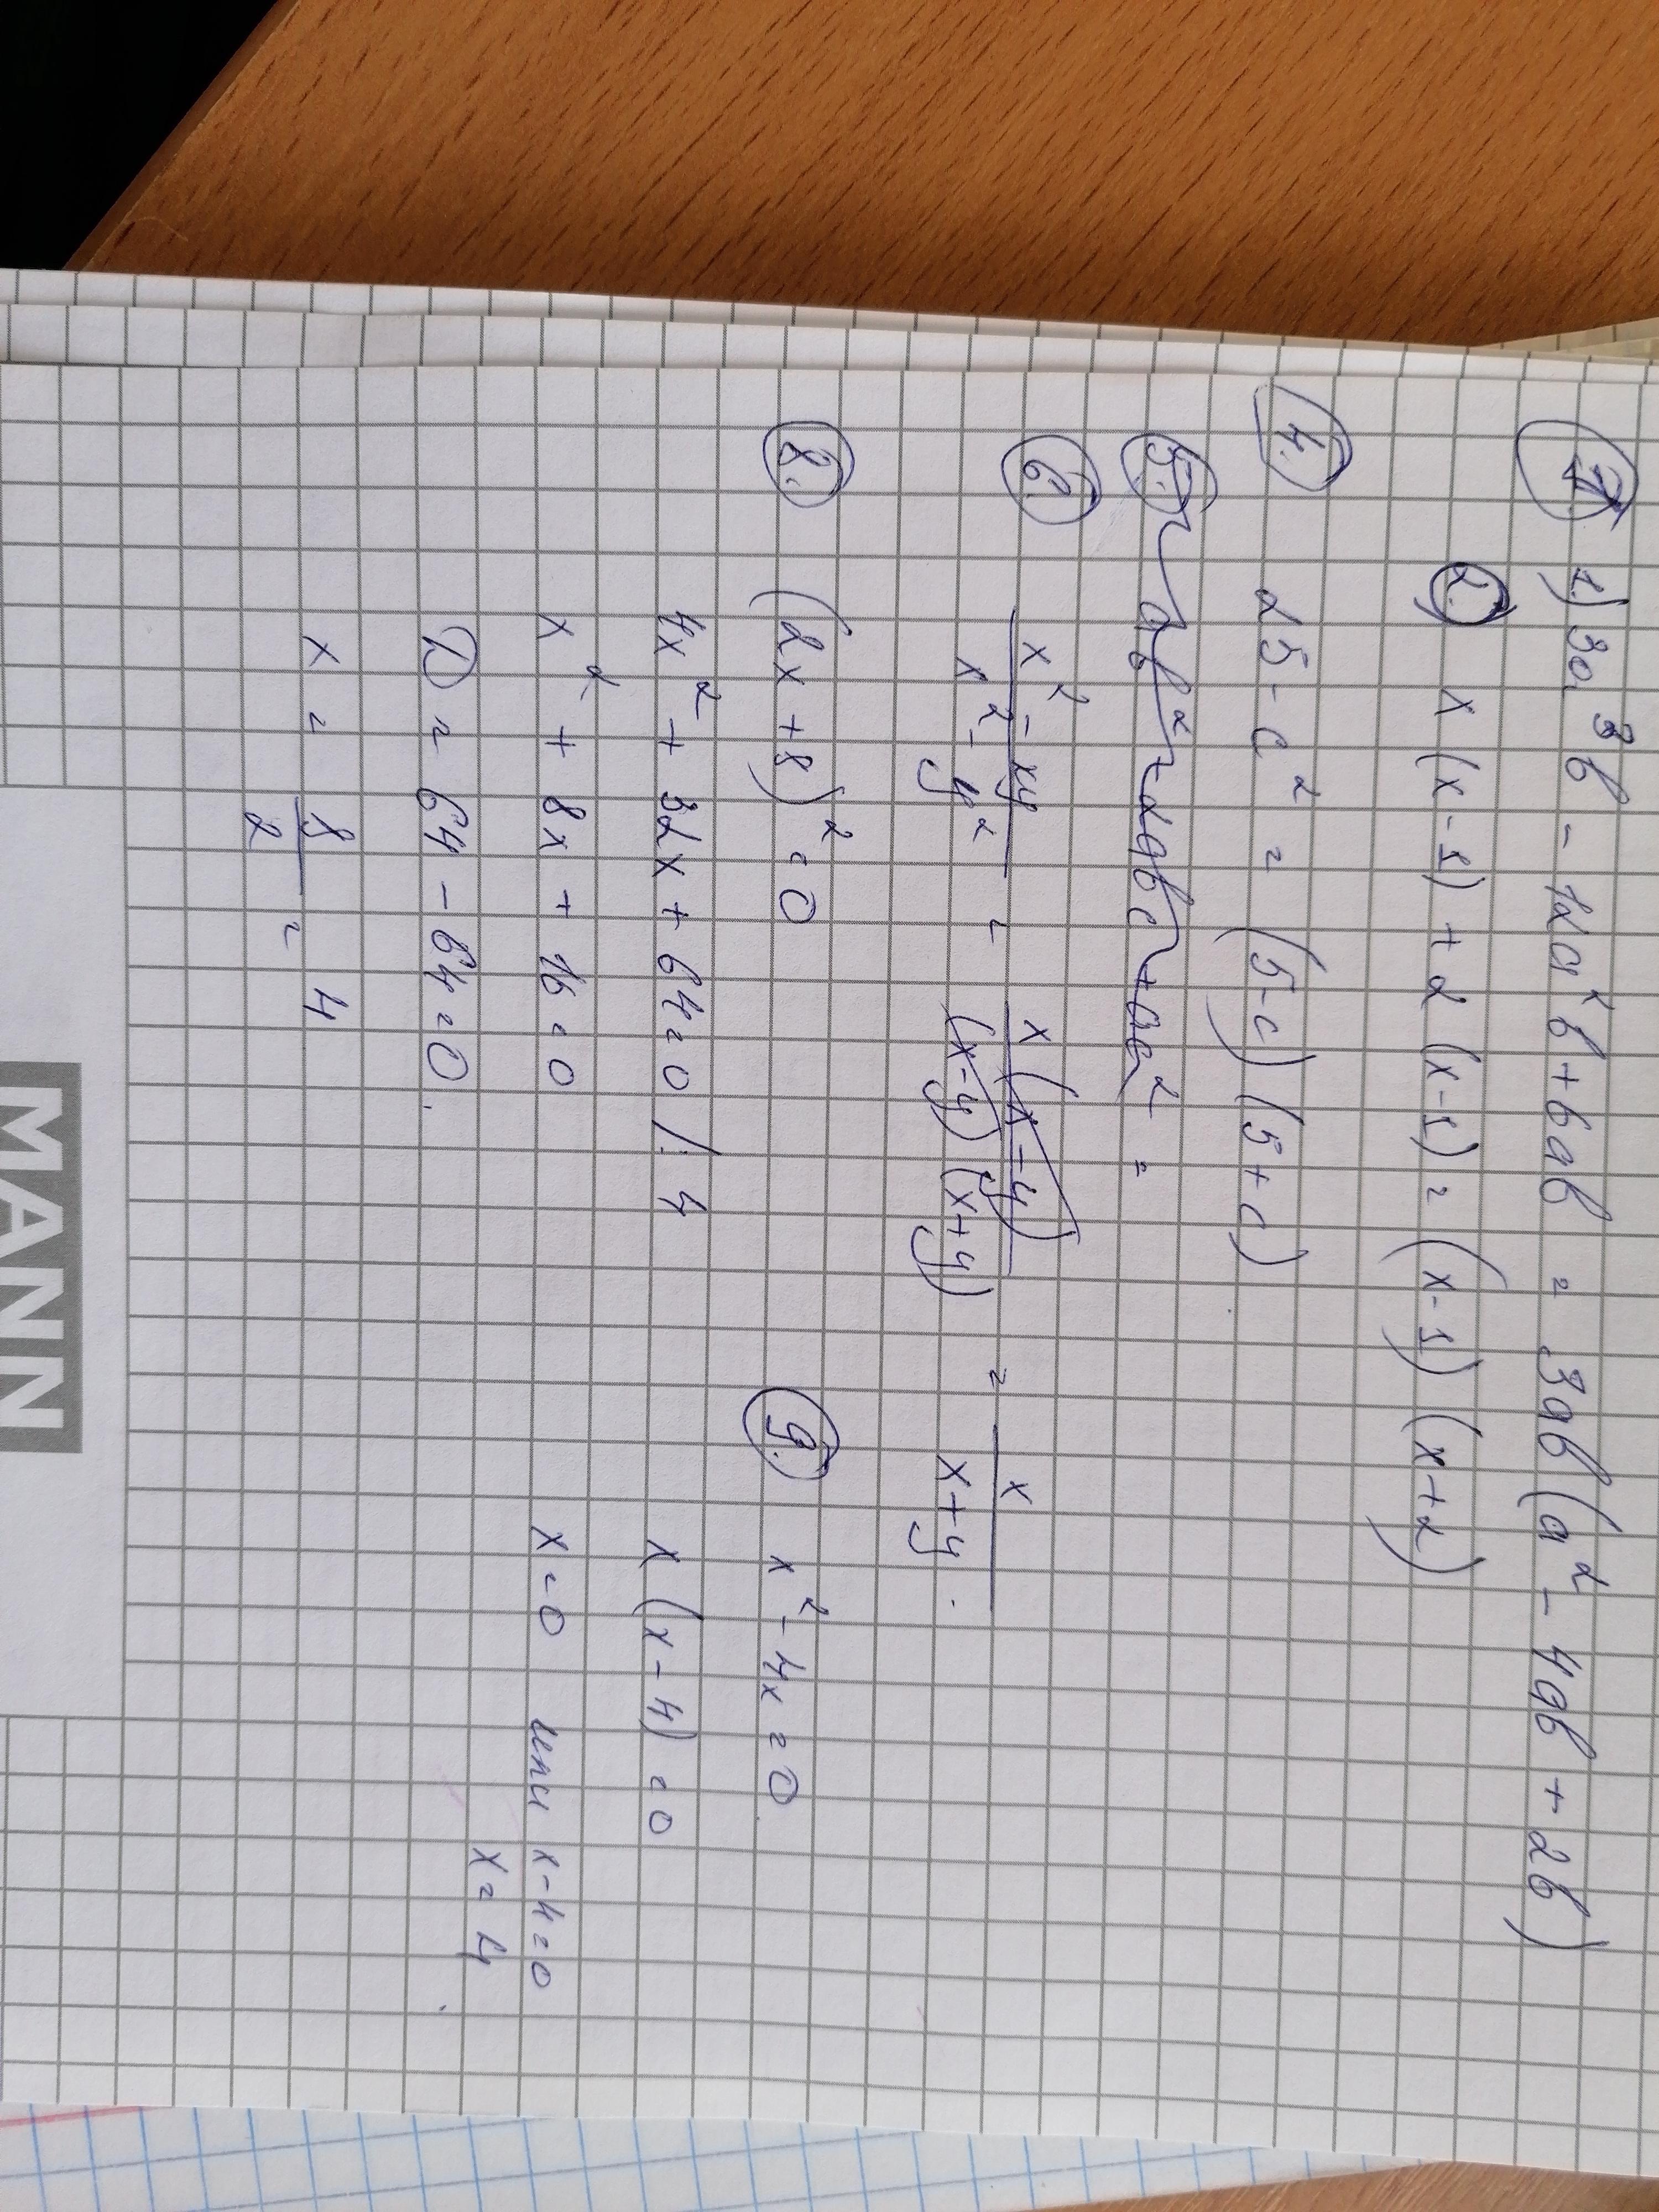 1. 1) 3a³b - 12a²b + 6ab = 3ab(a² - 4ab + 2b)
2. x(x-1) + 2(x-1) = (x-1)(x+2)
4. 25 - c² = (5-c)(5+c)
5. ab² - 2abc + ac² =
6. x² - xy / x² - y² = x(x-y) / (x-y)(x+y) = x / x+y .
8. (2x+8)² = 0
4x² + 32x + 64 = 0 /: 4
x² + 8x + 16 = 0
D = 64 - 64 = 0.
x = 8/2 = 4
9. x² - 4x = 0
x(x-4) = 0
x = 0 или x-4=0
x = 4
MANN